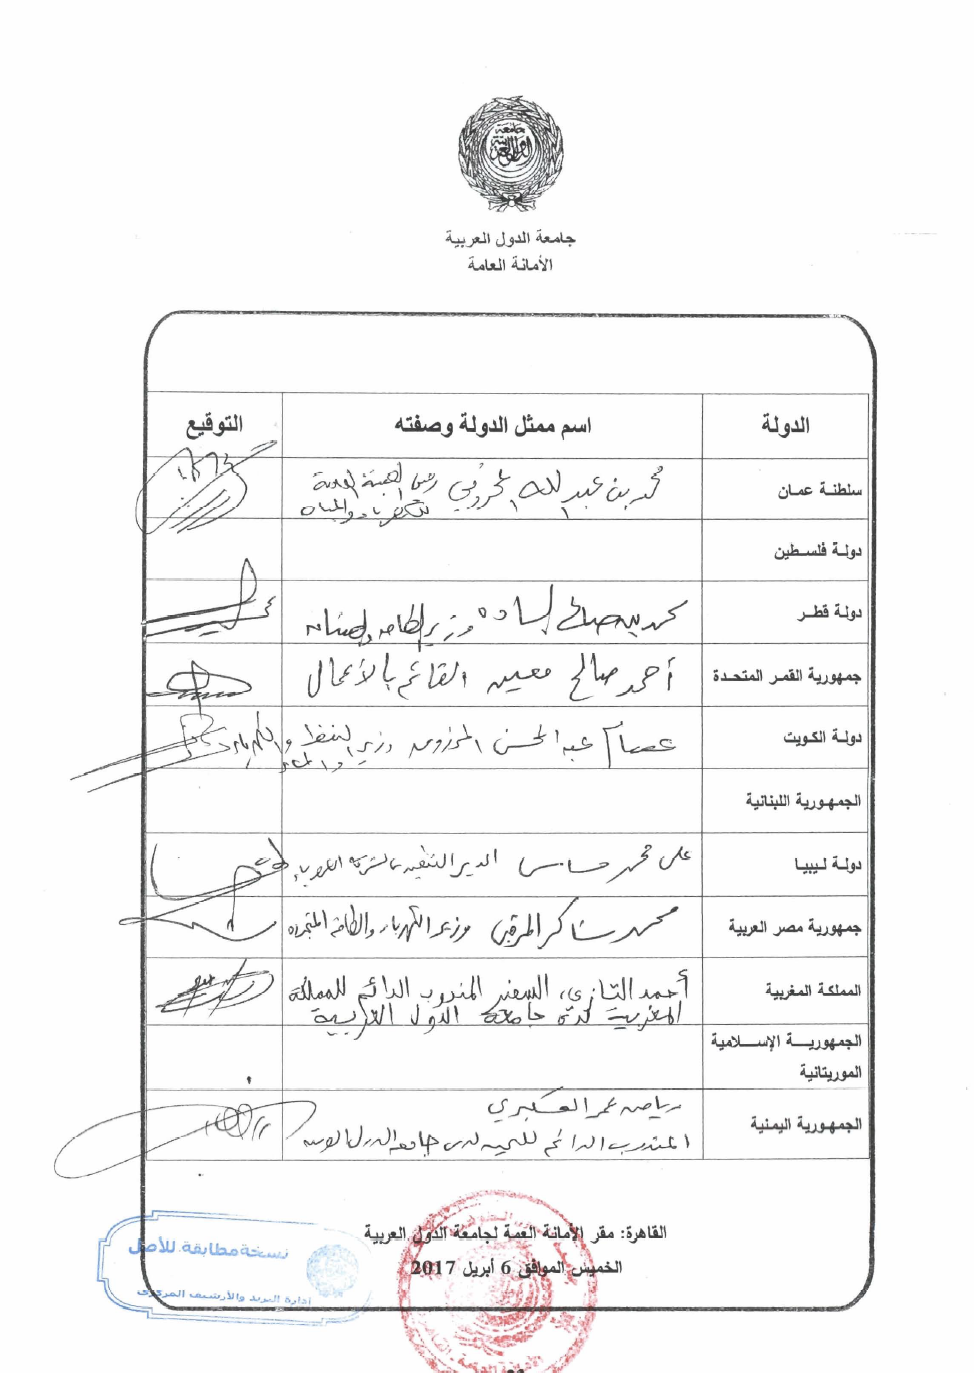 جامعة الدول العربية
جامعة الدول العربية
الأمانة العامة
الدولة
اسم ممثل الدولة وصفته
التوقيع
سلطنة عمان
محمد بن عبد الله المحروقي رئيس الهيئة العامة
للكهرباء والمياه
دولة فلسطين
دولة قطر
محمد بن صالح السادة وزير الطاقة والصناعة
جمهورية القمر المتحدة
أحمد صالح معين القائم بالأعمال
دولة الكويت
عصام عبد المحسن المرزوق وزير النفط والكهرباء
والماء
الجمهورية اللبنانية
دولة ليبيا
على محمد ساسي المدير التنفيذي الكهرباء
جمهورية مصر العربية
محمد شاكر المرقبي وزير الكهرباء والطاقة المتجددة
المملكة المغربية
أحمد التازي، السفير المندوب الدائم للمملكة
المغربية لدى جامعة الدول العربية
الجمهوريــة الإســلامية
الموريتانية
الجمهورية اليمنية
رياض عمر العكبري
المندوب الدائم لليمن لدى جامعة الدول العربية
القاهرة: مقر الأمانة العمة لجامعة الدول العربية
الخميس الموافق 6 أبريل 2017
نسخة مطابقة للأصل
إدارة البريد والأرشيف المركزى